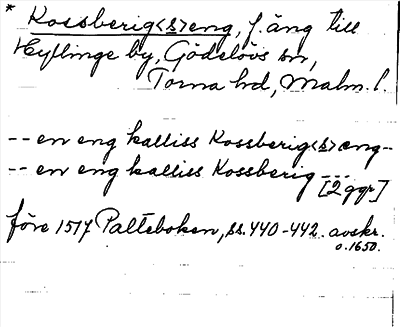 * Kossberig<s>eng, f. äng till
Hyllinge by, Gödelövs sn,
Torna hd, Malm. l.
-- en eng kalliss Kossberig<s>æng--
-- en eng kalliss Kossberig---
[2 ggr]
före 1517 Palteboken, ss. 440-442. avskr.
o. 1650.